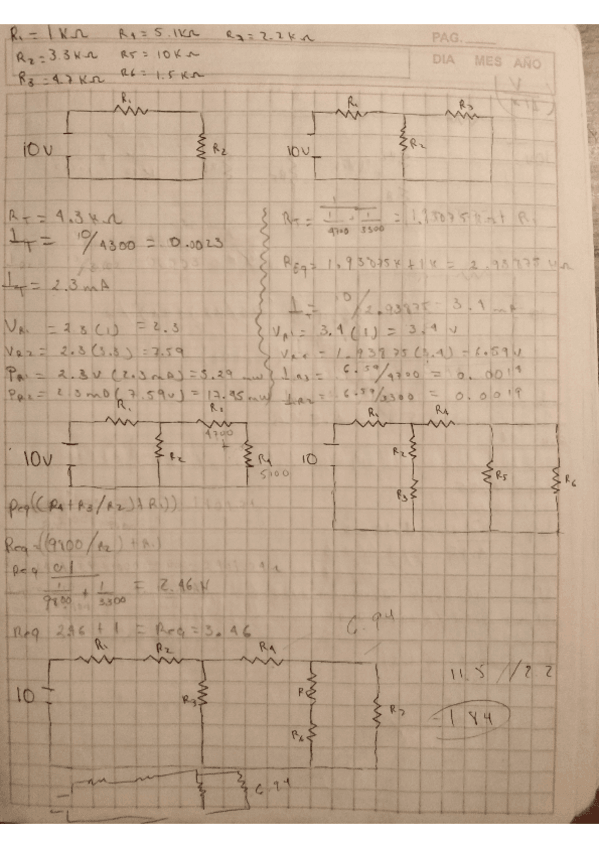 R₁ = 1 KΩ R4 = 5.1KΩ R7 = 2.2KΩ
R2 = 3.3KΩ R5 = 10KΩ
R3 = 4.7KΩ R6 = 1.5KΩ
PAG.
DIA MES AÑO
R₁
10V
R2
R₁ R3
10V
R2
RT = 4.3 KΩ
IT = 10/4300 = 0.0023
IT = 2.3mA
VR1 = 2.3(1) = 2.3
VR2 = 2.3(3.3) = 7.59
PR1 = 2.3V (2.3mA) = 5.29 mW
PR2 = 2.3mA(7.59V) = 17.45mW
1/4700 + 1/3300 = 1.93875K
REq = 1.93875K + 1K = 2.93875 KΩ
10/2.93875 = 3.4 mA
VR1 = 3.4(1) = 3.4 V
= 1.93875(3.4) = 6.59V
6.59/4700 = 0.0014
IR2 = 6.59/3300 = 0.0019
R₁ R3
4700
10V
R2
R4
5100
R₁ R4
10
R2
R3
R5
R6
Req((R4+R3/R2)+R1))
Req = ((9800/R2) + R1
Req
1/9800 + 1/3300 = 2.46 K
Req 2.46 + 1 = Req = 3.46
6.94
R1 R2 R4
10
R3
R5
R6
R7
11.5 // 2.2
1.84
6.94